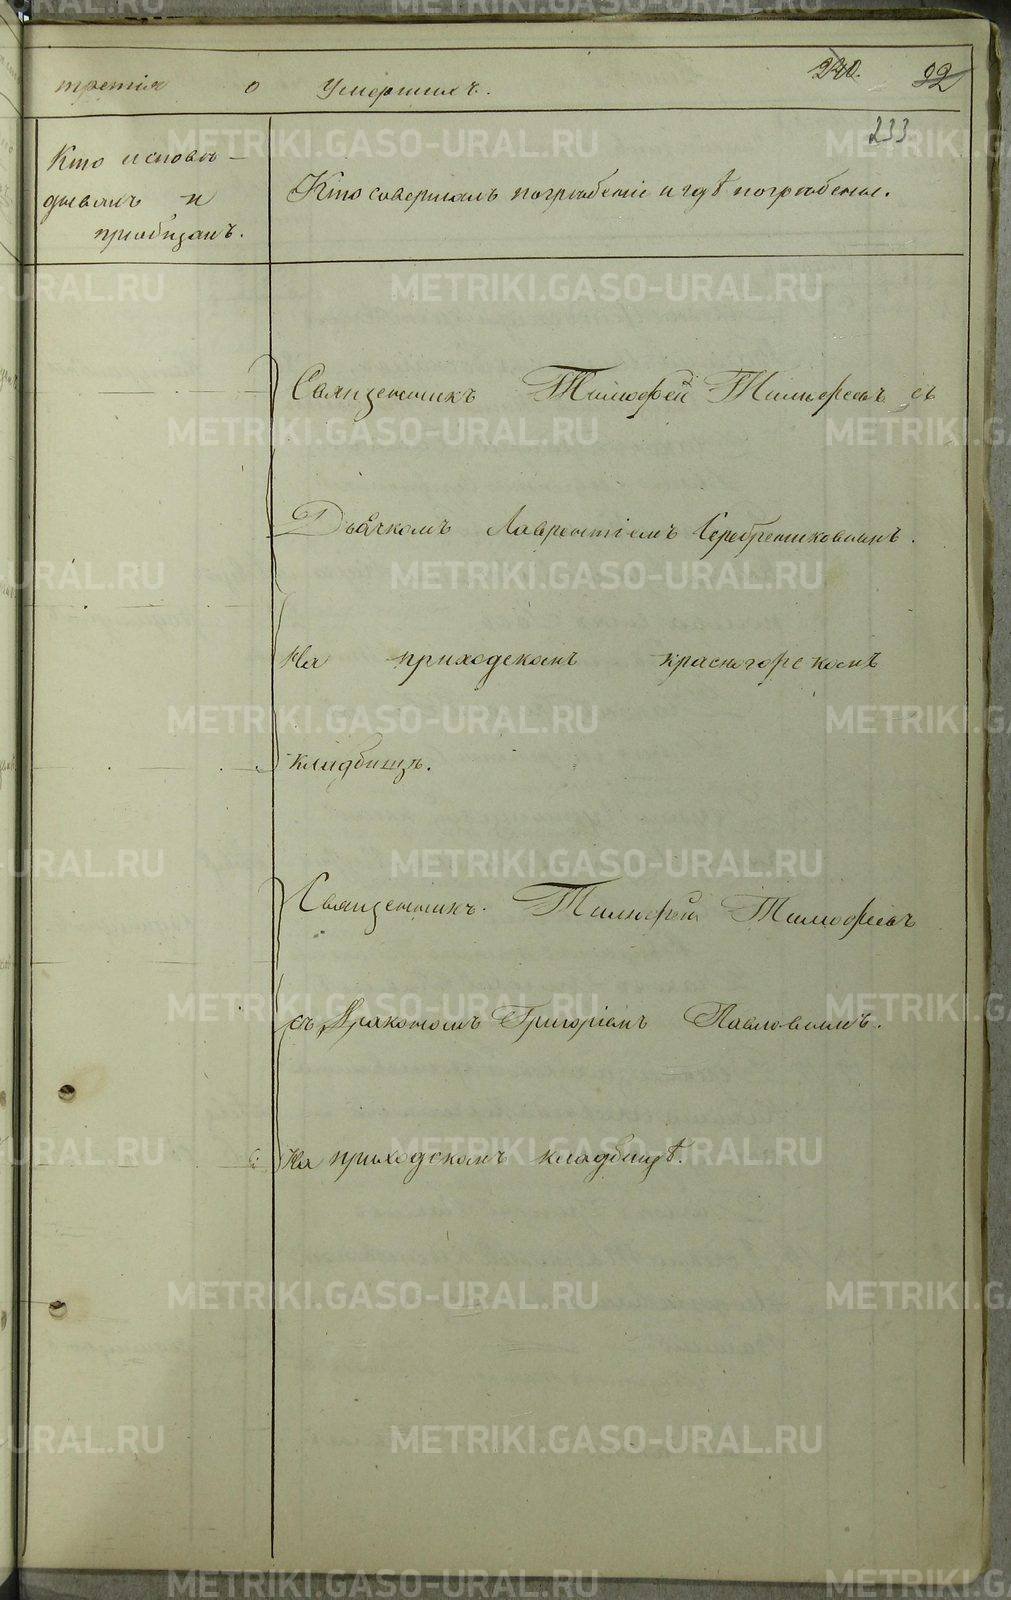 240. 92
третія о умершихъ.
233
Кто исповѣ-
дывалъ и
пріобщалъ.
Кто совершалъ погребеніе и гдѣ погребены.
Священникъ Тимофей Тимофеевъ съ
Дьячкомъ Лаврентіемъ Серебрениковымъ.
На приходскомъ красногорскомъ
кладбищѣ.
Священникъ Тимофей Тимофеевъ
съ Діакономъ Григоріемъ Павловымъ.
На приходскомъ кладбищѣ.
METRIKI.GASO-URAL.RU